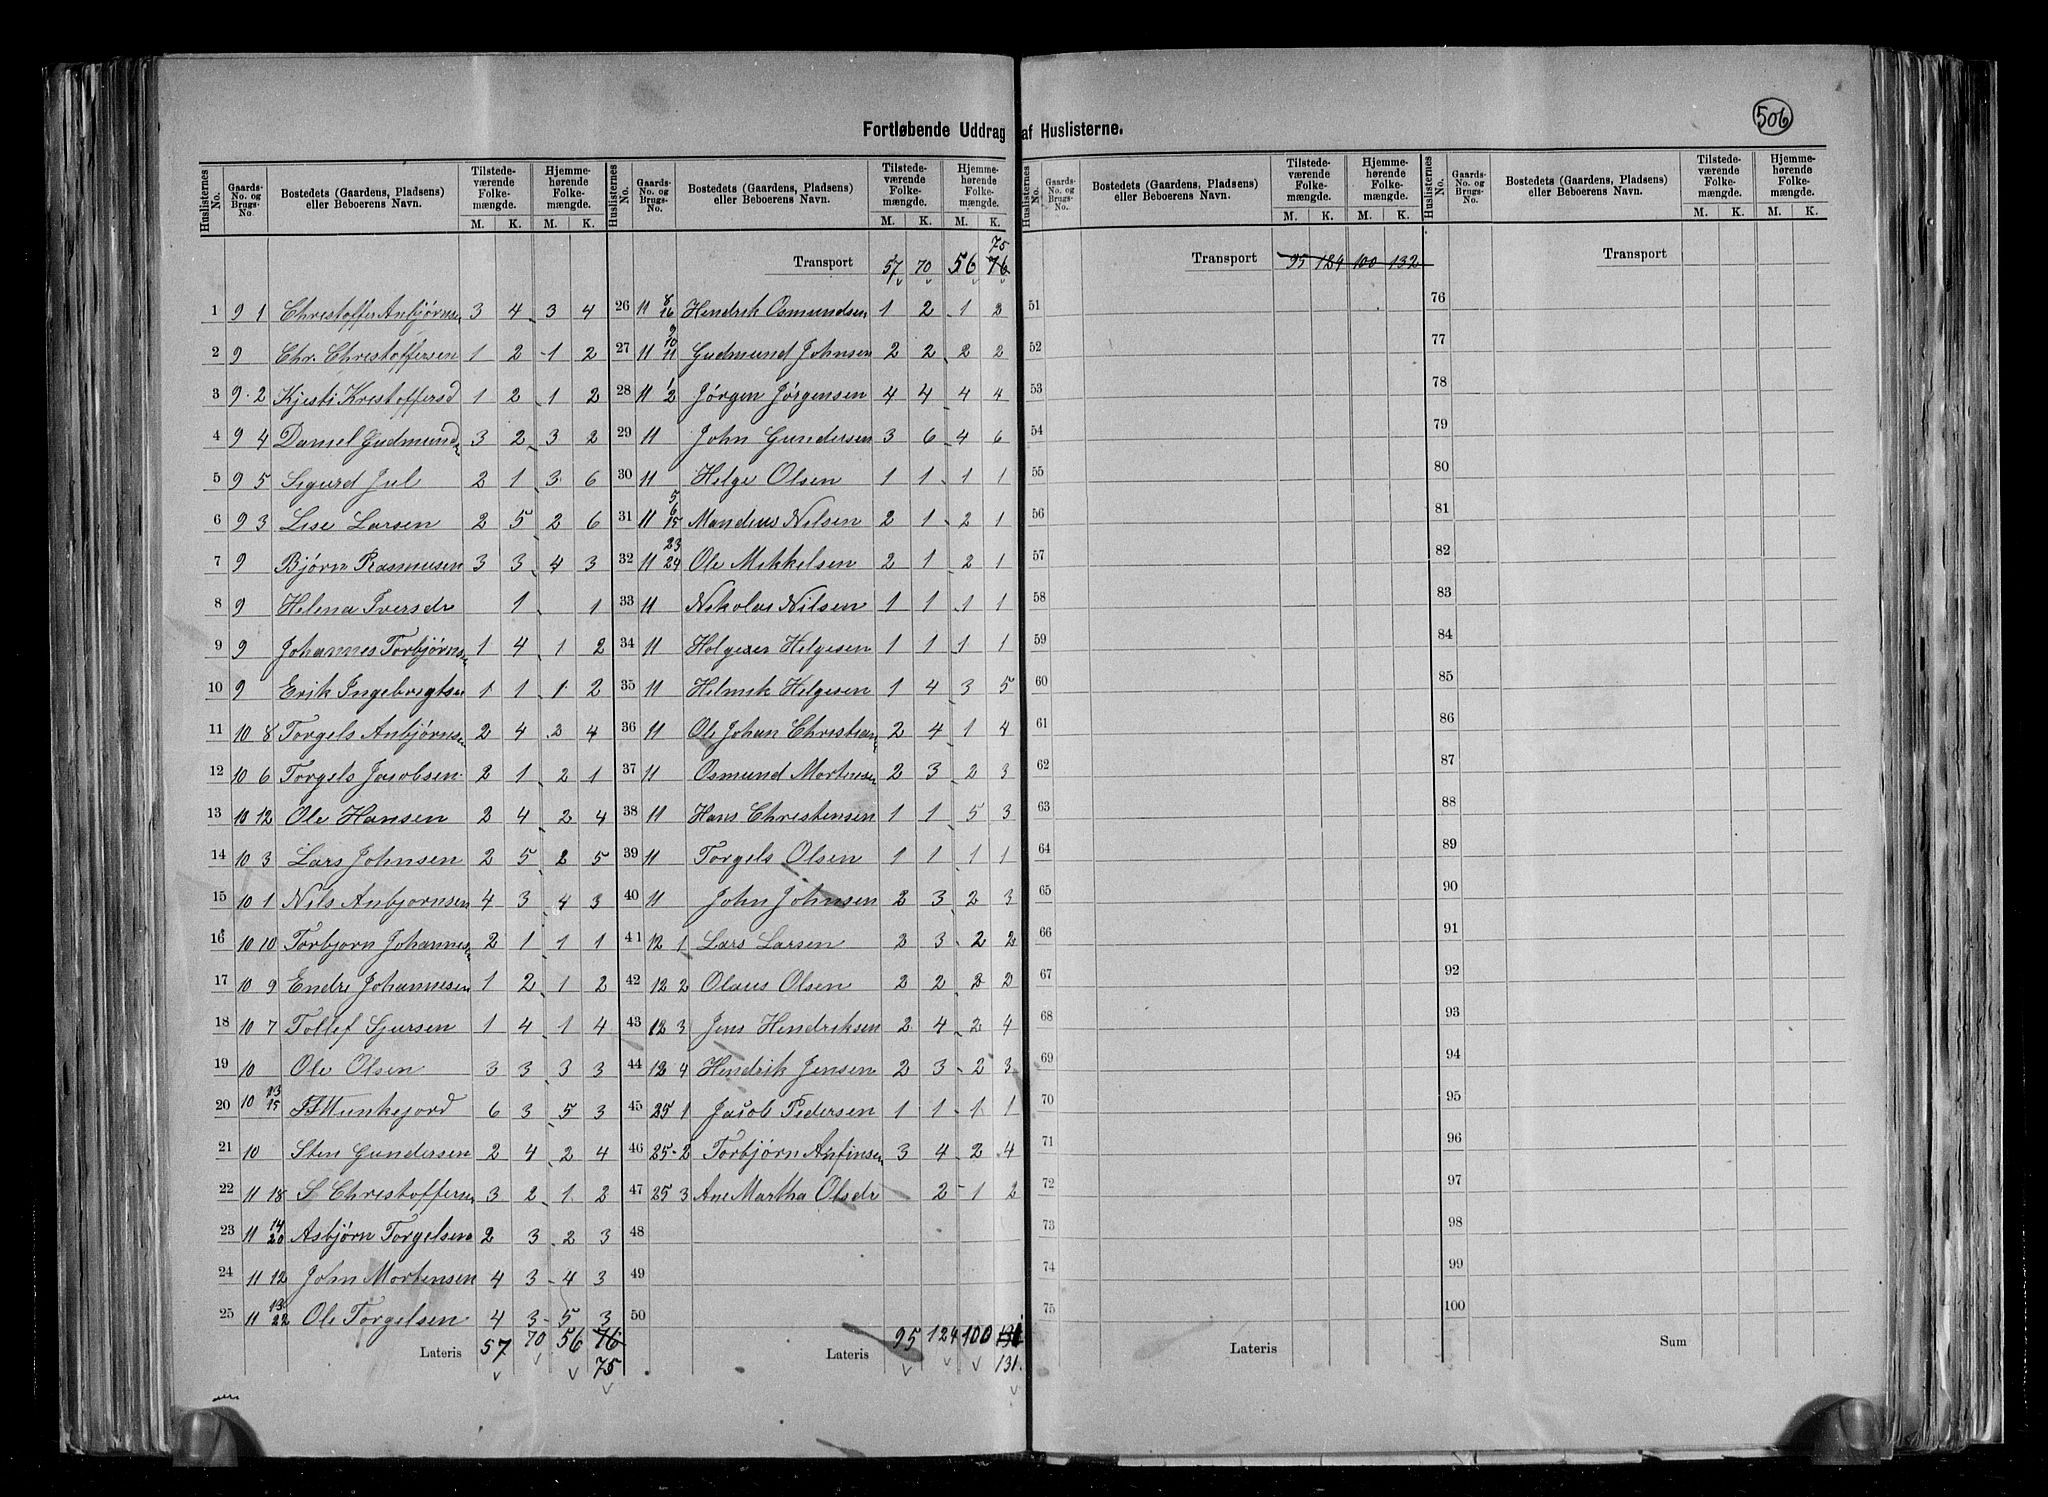 506
Fortløbende Uddrag af Huslisterne.
Huslisternes No. Gaards-No. og Brugs-No. Bostedets (Gaardens, Pladsens) eller Beboerens Navn. Tilstedeværende Folkemængde. M. K. Hjemmehørende Folkemængde. M. K.
1 9 1 Christoffer Anbjørns. 3 4 3 4
2 9 Chr. Christoffersen 1 2 1 2
3 9 2 Kjesti Kristoffersd 1 2 1 2
4 9 4 Daniel Gudmund 3 2 3 2
5 9 5 Sigurd Jul 2 1 3 6
6 9 3 Lise Larsen 2 5 2 6
7 9 Bjørn Rasmusen 3 3 4 3
8 9 Helena Iversdr 1 1
9 9 Johannes Torbjørns. 1 4 1 2
10 9 Erik Ingebregtsen 1 1 1 2
11 10 8 Torgels Anbjørns. 2 4 2 4
12 10 6 Torgels Jacobsen 2 1 2 1
13 10 12 Ole Hansen 2 4 2 4
14 10 3 Lars Johnsen 2 5 2 5
15 10 1 Nils Anbjornsen 4 3 4 3
16 10 10 Torbjorn Johannes. 2 1 1 1
17 10 9 Endre Johannesen 1 2 1 2
18 10 7 Tollef Sjursen 1 4 1 4
19 10 Ole Olsen 3 3 3 3
20 10 13 15 Munkejord 6 3 5 3
21 10 Sten Gundersen 2 4 2 4
22 11 18 S Christoffersen 3 2 1 2
23 11 14 20 Asbjørn Torgelsen 2 3 2 3
24 11 12 John Mortensen 4 3 4 3
25 11 13 22 Ole Torgelsen 4 3 5 3
Lateris 57 70 56 76
75
Huslisternes No. Gaards-No. og Brugs-No. Bostedets (Gaardens, Pladsens) eller Beboerens Navn. Tilstedeværende Folkemængde. M. K. Hjemmehørende Folkemængde. M. K.
75
Transport 57 70 56 76
26 11 8 16 Hendrik Osmundsen 1 2 1 2
27 11 9 10 11 Gudmund Johnsen 2 2 2 2
28 11 1 2 Jørgen Jørgensen 4 4 4 4
29 11 John Gundersen 3 6 4 6
30 11 Helge Olsen 1 1 1 1
31 11 5 6 15 Mandius Nilsen 2 1 2 1
32 11 23 24 Ole Mikkelsen 2 1 2 1
33 11 Nikolai Nilsen 1 1 1 1
34 11 Helgesen 1 1 1 1
35 11 Helmik Helgesen 1 4 3 5
36 11 Ole Johan Christian 2 4 1 4
37 11 Osmund Mortensen 2 3 2 3
38 11 Hans Christensen 1 1 5 3
39 11 Torgels Olsen 1 1 1 1
40 11 John Johnsen 2 3 2 3
41 12 1 Lars Larsen 2 3 2 2
42 12 2 Olaus Olsen 2 2 2 2
43 12 3 Jens Hendriksen 2 4 2 4
44 12 4 Hendrik Jensen 2 3 2 3
45 25 1 Jacob Pedersen 1 1 1 1
46 25 2 Torbjørn Anfinsen 3 4 2 4
47 25 3 Ane Martha Olsdr 2 1 2
48
49
50
Lateris 95 124 100
131.
Huslisternes No. Gaards-No. og Brugs-No. Bostedets (Gaardens, Pladsens) eller Beboerens Navn. Tilstedeværende Folkemængde. M. K. Hjemmehørende Folkemængde. M. K.
Transport 95 124 100 132
51
52
53
54
55
56
57
58
59
60
61
62
63
64
65
66
67
68
69
70
71
72
73
74
75
Lateris
Huslisternes No. Gaards-No. og Brugs-No. Bostedets (Gaardens, Pladsens) eller Beboerens Navn. Tilstedeværende Folkemængde. M. K. Hjemmehørende Folkemængde. M. K.
Transport
76
77
78
79
80
81
82
83
84
85
86
87
88
89
90
91
92
93
94
95
96
97
98
99
100
Sum